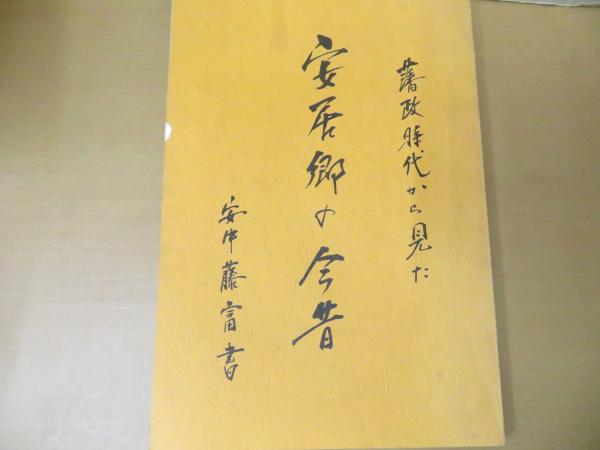 藩政時代から見た
安居郷の今昔
安中藤富書